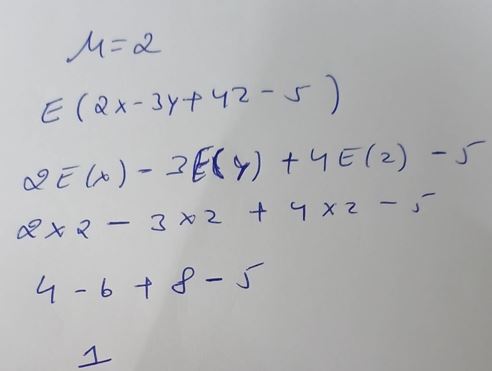 μ=2
E(2x-3y+4z-5)
2E(x)-3E(y)+4E(z)-5
2×2-3×2+4×2-5
4-6+8-5
1